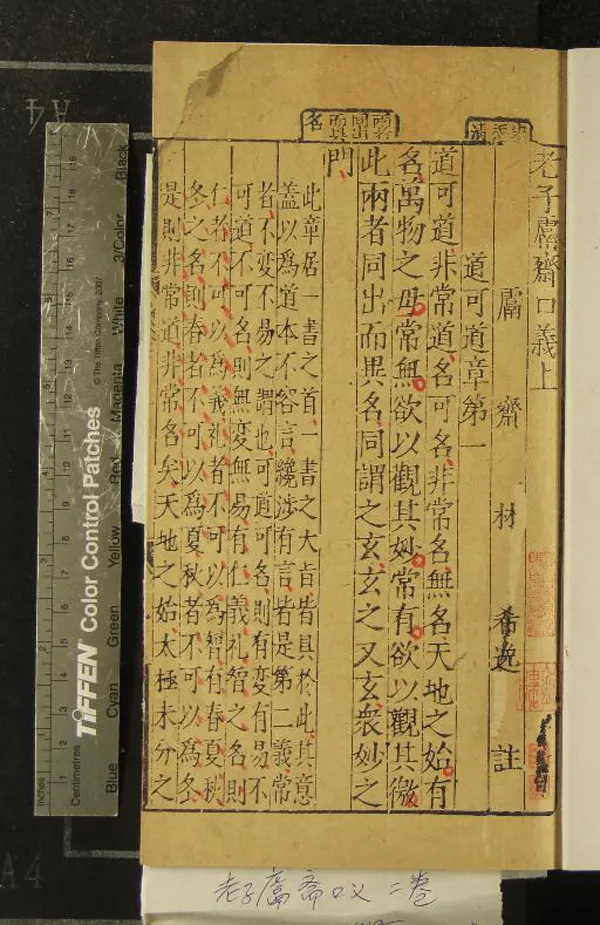 老子鬳齋口義上
鬳齋林希逸註
道可道章第一
道可道非常道名可名非常名無名天地之始有
名萬物之母常無欲以觀其妙常有欲以觀其徼
此兩者同出而異名同謂之玄玄之又玄衆妙之
門
此章居一書之首一書之大旨皆具於此其意
盖以爲道本不容言纔涉有言皆是第二義常
者不变不易之謂也可道可名則有变有易不
可道不可名則無变無易有仁義礼智之名則
仁者不可以為義礼者不可以為智有春夏秋
冬之名則春者不可以爲夏秋者不可以爲冬
是則非常道非常名矣天地之始太極未分之
兩者
同出
而異
名
老子鬳斋口义 二卷
A4
A4
Inches
Centimetres
1 2 3 4 5 6 7 8 9 10 11 12 13 14 15 16 17 18 19
TIFFEN Color Control Patches
© The Tiffen Company, 2007
Blue Cyan Green Yellow Red Magenta White 3/Color Black